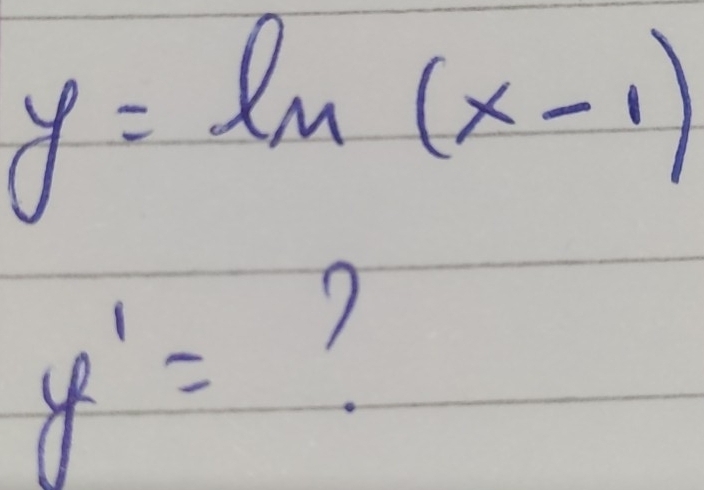 y = ln (x - 1)
y' = ?